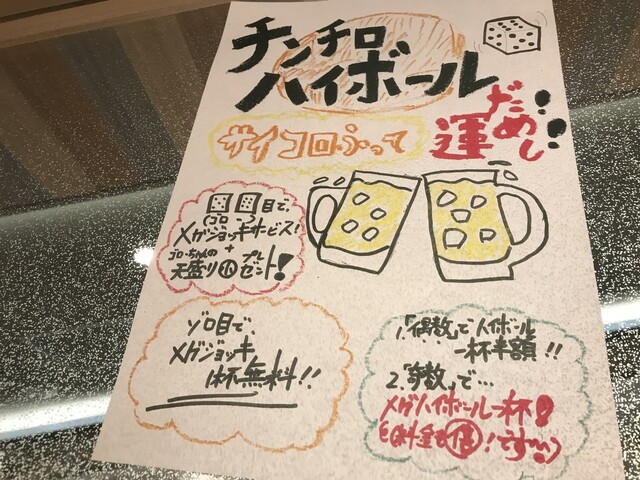 チンチロ
ハイボール
サイコロふって
運だめし!!
目で、
(ゴロ
メガジョッキサービス!
+
ゴロちゃんの
天盛り小プレゼント!
ゾロ目で、
メガジョッキ
1杯無料!!
1.「偶数」でハイボール
一杯半額!!
2.「奇数」で…
メガハイボール一杯!
料金も倍!です